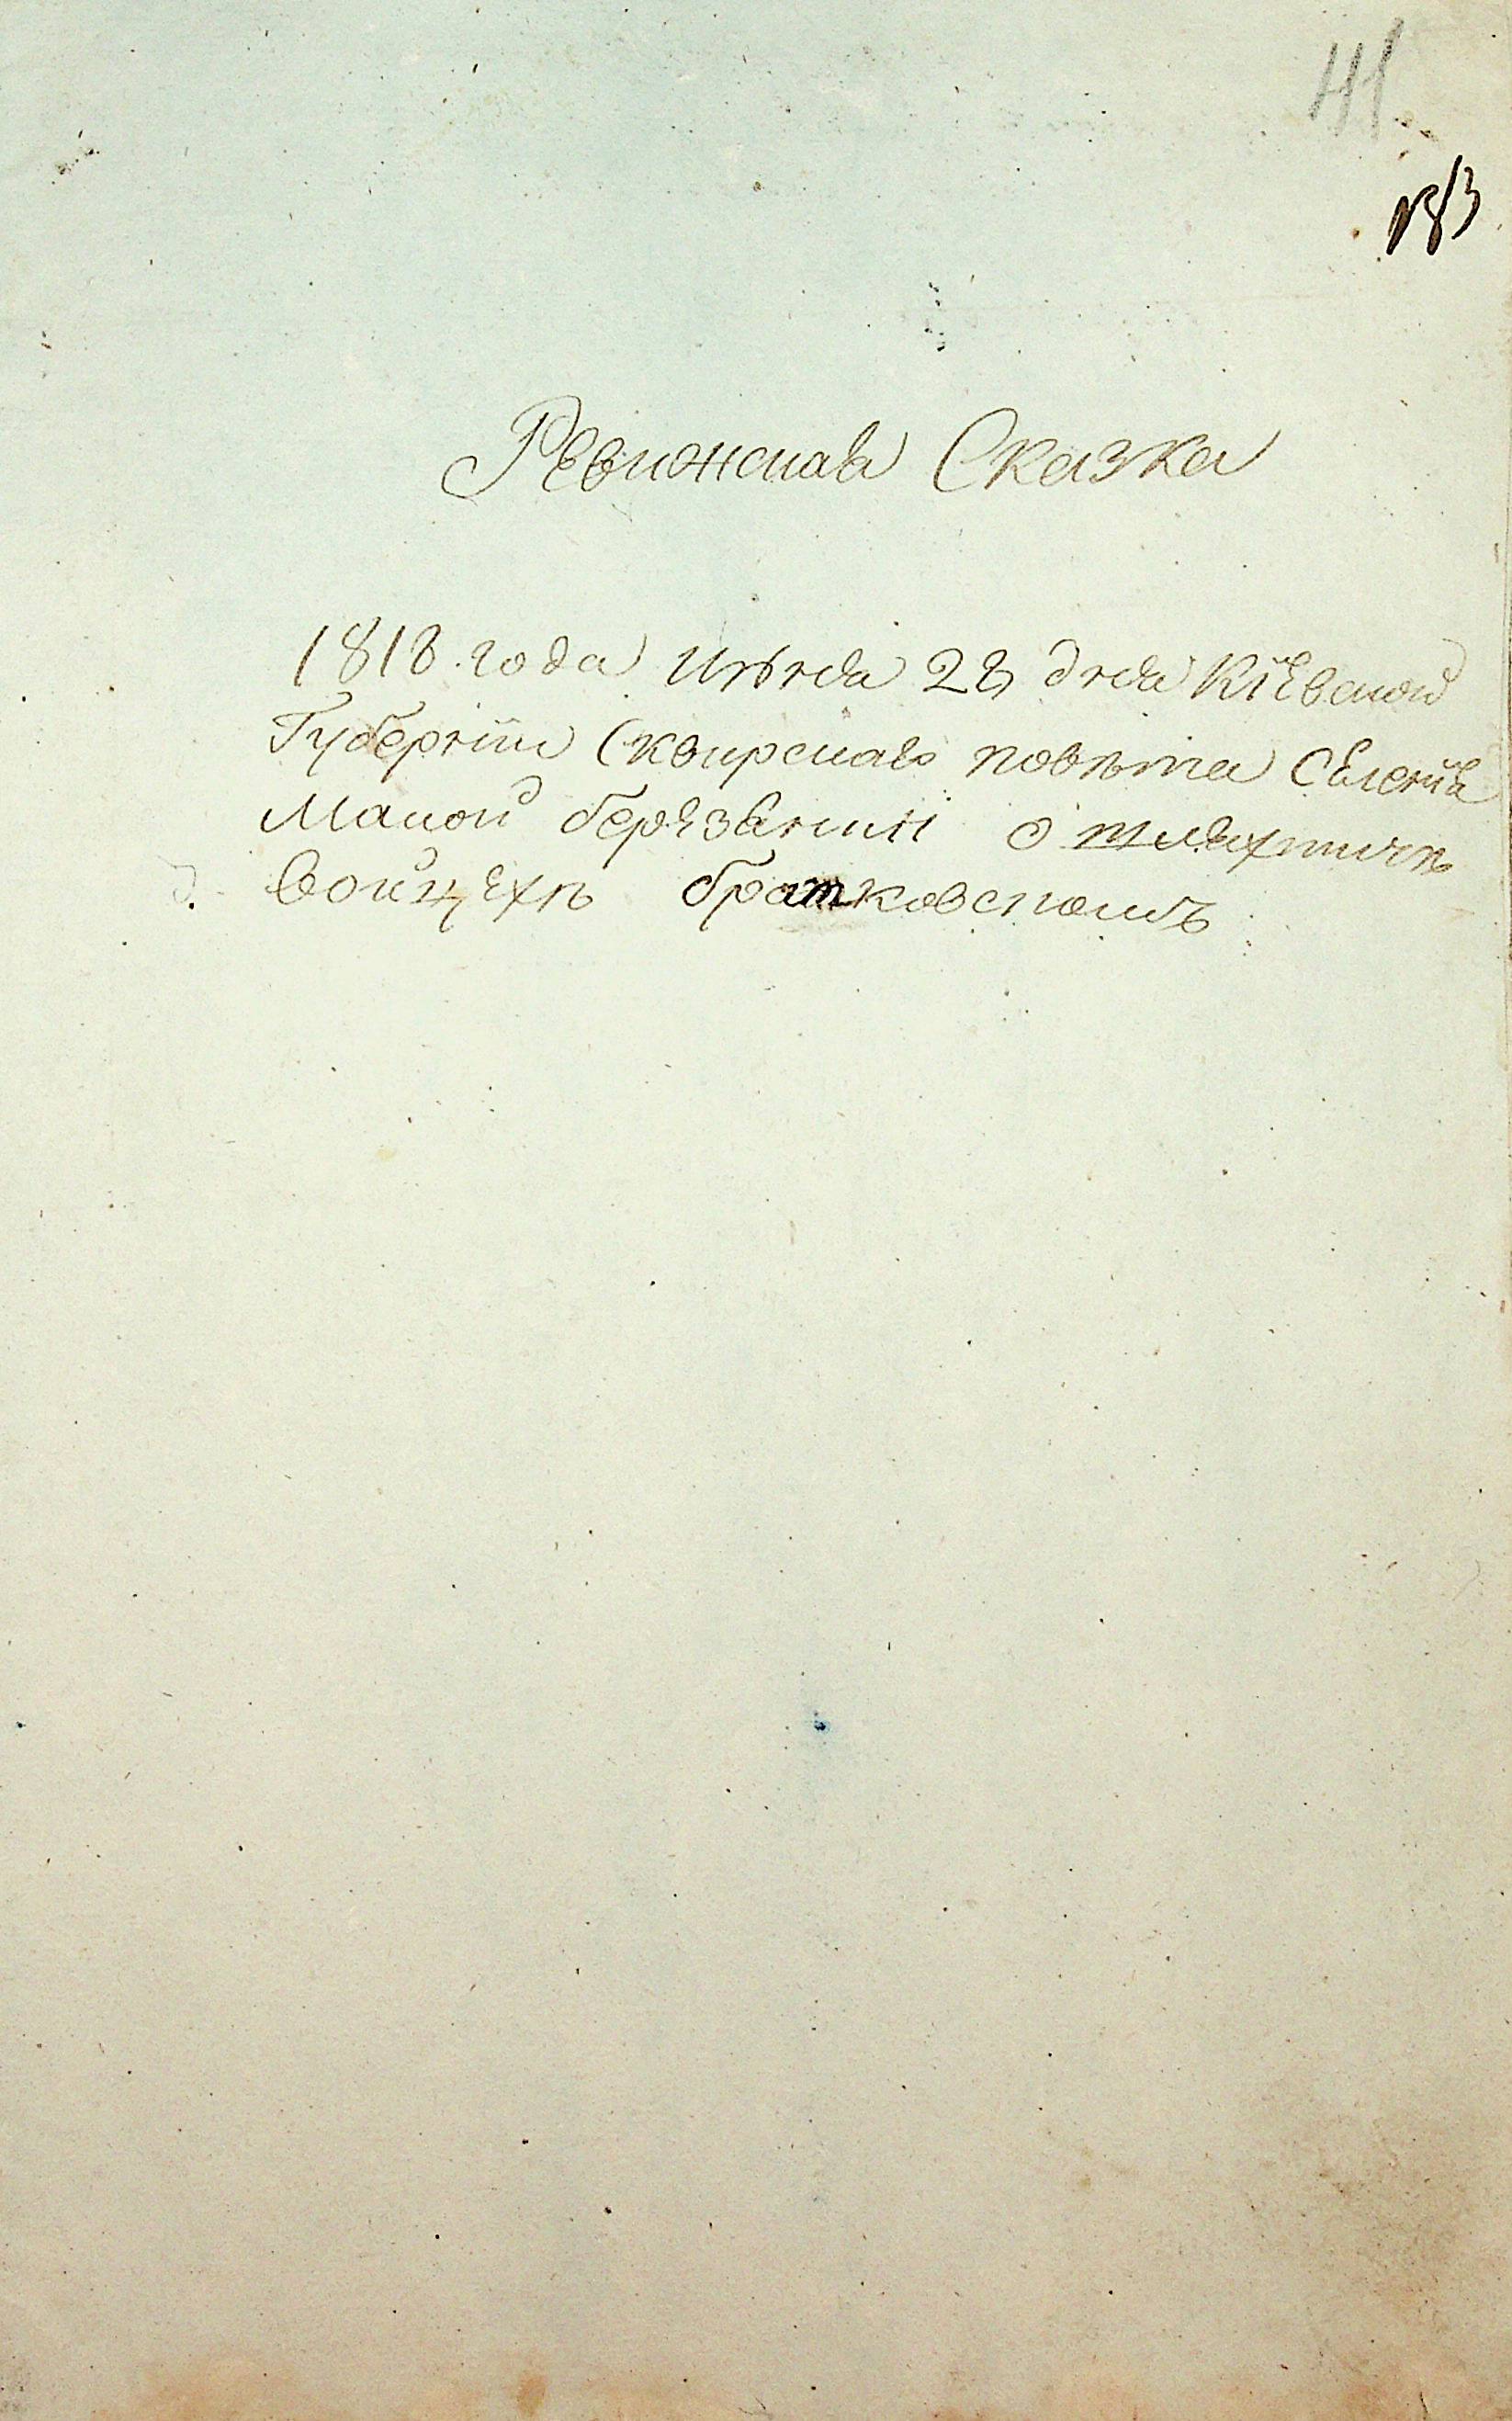 41
183
Ревижская Сказка
1818 года июня 28 дня Кіевской
Губерніи Сквирскаго повѣта Селенія
Малой березянки о шляхтичѣ
войцехѣ братковскомъ